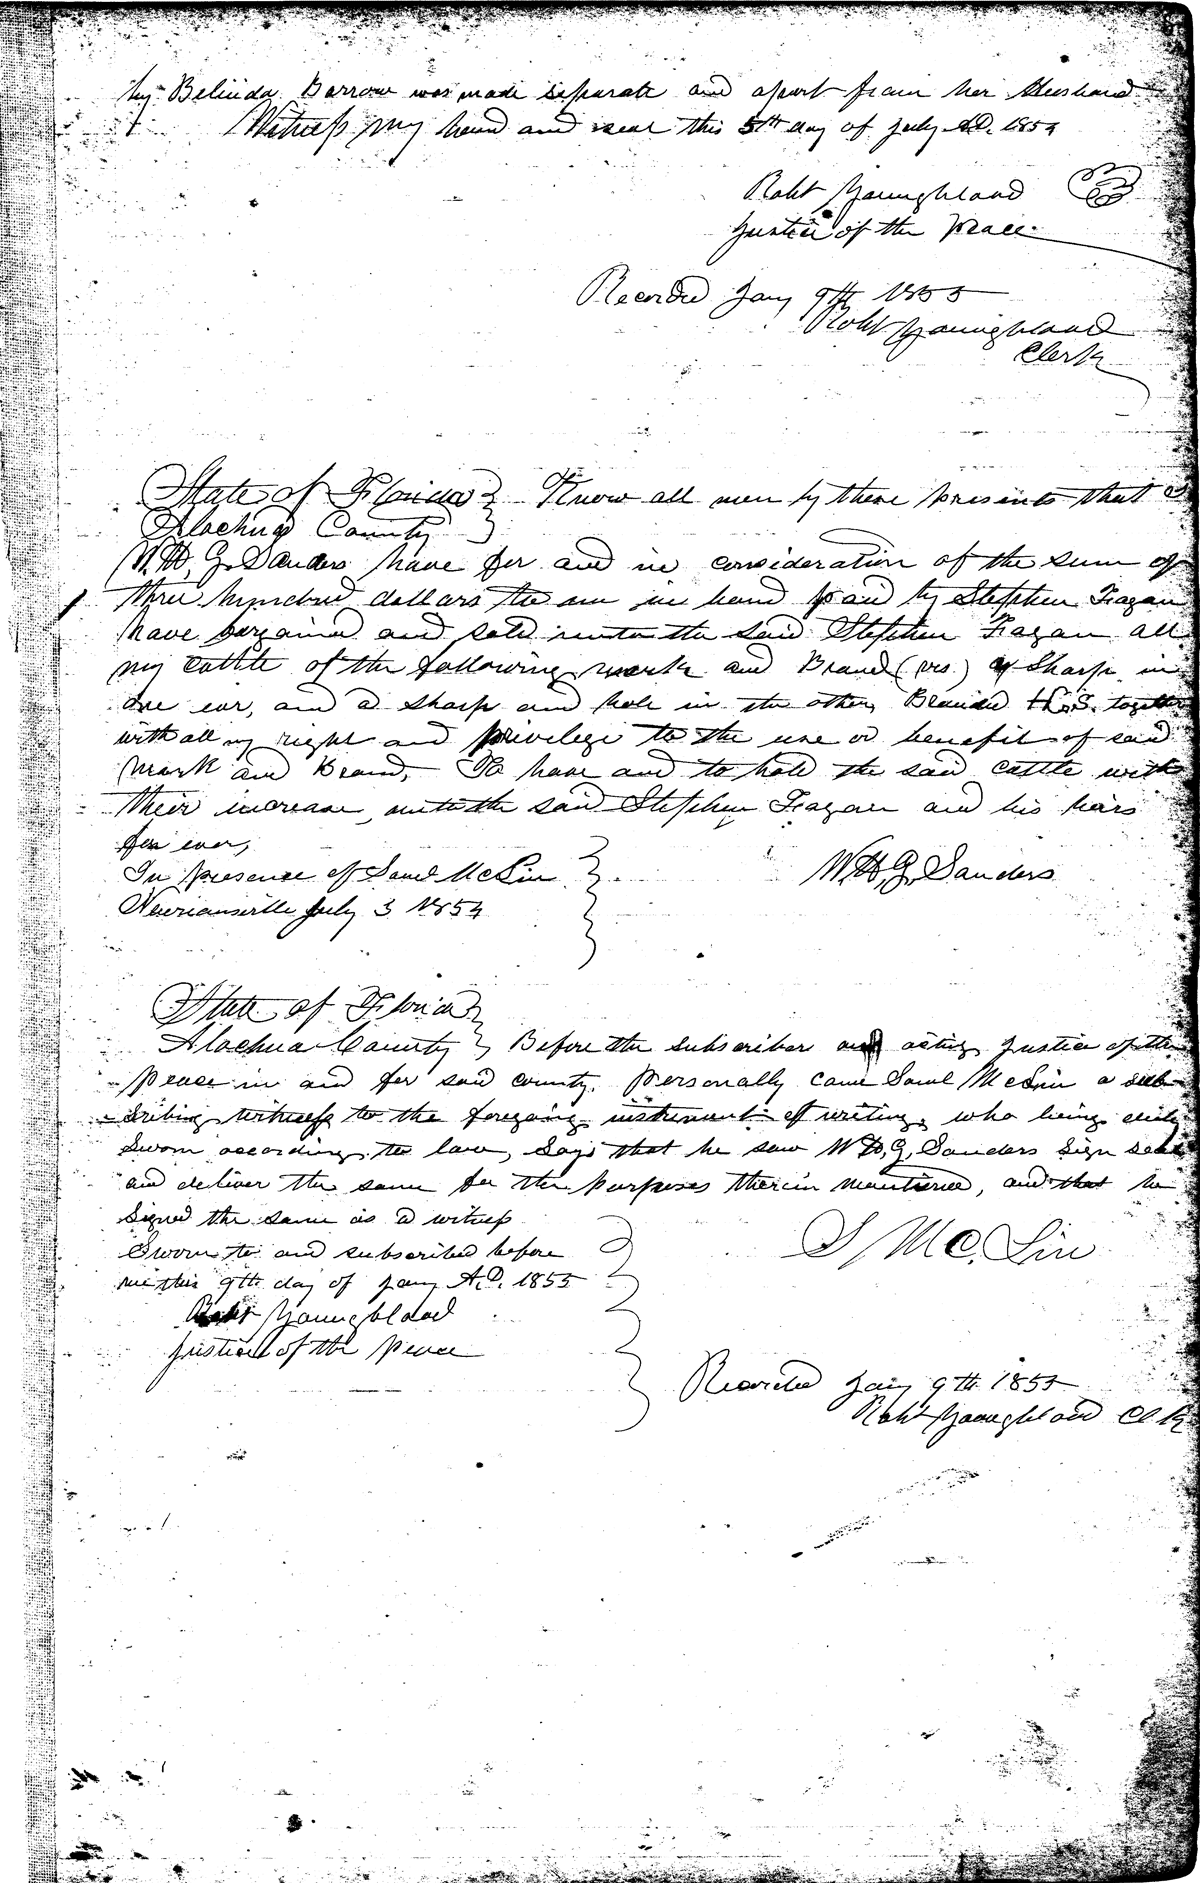 by Belinda Barrow was made separate and apart from her Husband
Witness my hand and seal this 5th day of July A.D. 1854
Robt Youngblood
Justice of the Peace
Recorded Jany 9th 1855
Robt Youngblood
Clerk
State of Florida } Know all men by these presents that I
Alachua County }
W. H. G. Sanders have for and in consideration of the sum of
three hundred dollars to me in hand paid by Stephen Fagan
have bargained and sold unto the said Stephen Fagan all
my cattle of the following mark and Brand (vis.) a Sharp in
one ear, and a sharp and hole in the other, Branded H.S. together
with all my right and privilege to the use or benefit of said
mark and Brand, To have and to hold the said cattle with
their increase, unto the said Stephen Fagan and his heirs
for ever,
In presence of Saml McLin } W. H. G. Sanders
Newnansville July 3 1854
State of Florida }
Alachua County } Before the subscriber an acting Justice of the
Peace in and for said county, Personally came Saml McLin a sub-
scribing witness to the foregoing instrument of writing, who being duly
Sworn according to law, Says that he saw W. H. G. Sanders Sign seal
and deliver the same for the purposes therein mentioned, and that he
Signed the same as a witness
Sworn to and subscribed before
me this 9th day of Jany A.D. 1855
S McLin
Robt Youngblood
Justice of the Peace
Recorded Jany 9th 1855
Robt Youngblood Clk